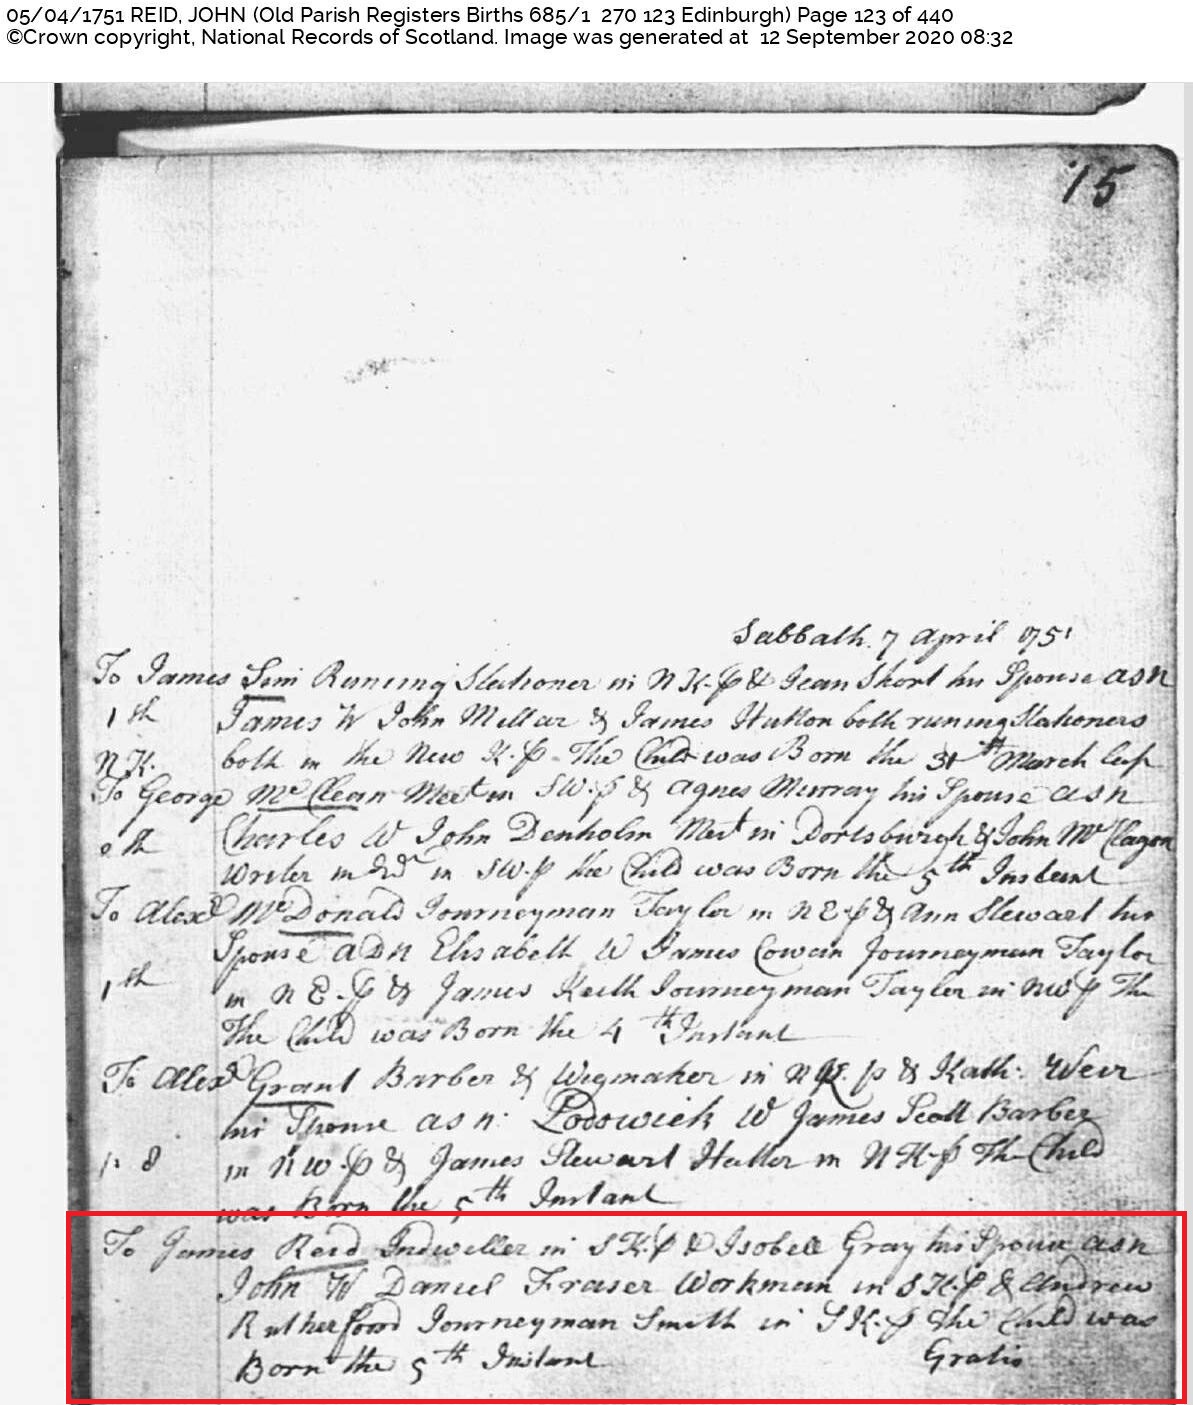 05/04/1751 REID, JOHN (Old Parish Registers Births 685/1 270 123 Edinburgh) Page 123 of 440
©Crown copyright, National Records of Scotland. Image was generated at 12 September 2020 08:32
15
Sabbath 7 April 1751
To James Sim Runing Stationer in N K. p & Jean Short his Spouse a s n
1 th James W John Millar & James Hutton both runing Stationers
N K. both in the New K. p. The Child was Born the 31th March last
To George McClean Mert in S W. p & Agnes Murray his Spouse a s n
th Charles W John Denholm Mert in Portsburgh & John McClagon
Writer in Edr in S W. p the Child was Born the 5th Instant
To Alexr McDonald Journeyman Taylor in N E p & Ann Stewart his
Spouse a D n Elisabeth W James Cowan Journeyman Taylor
1 th in N E. p & James Keith Journeyman Taylor in N W p The
The Child was Born the 4th Instant
To Alexr Grant Barber & Wigmaker in N K. p & Kath: Weir
his Spouse a s n: Lodowick W James Scott Barber
8 in N W. p & James Stewart Hatter in N K p The Child
was Born the 5th Instant
To James Reid Indweller in S K. p & Isobell Gray his Spouse a s n
John W Daniel Fraser Workman in S K. p & Andrew
Rutherfoord Journeyman Smith in S K. p The Child was
Born the 5th Instant Gratis